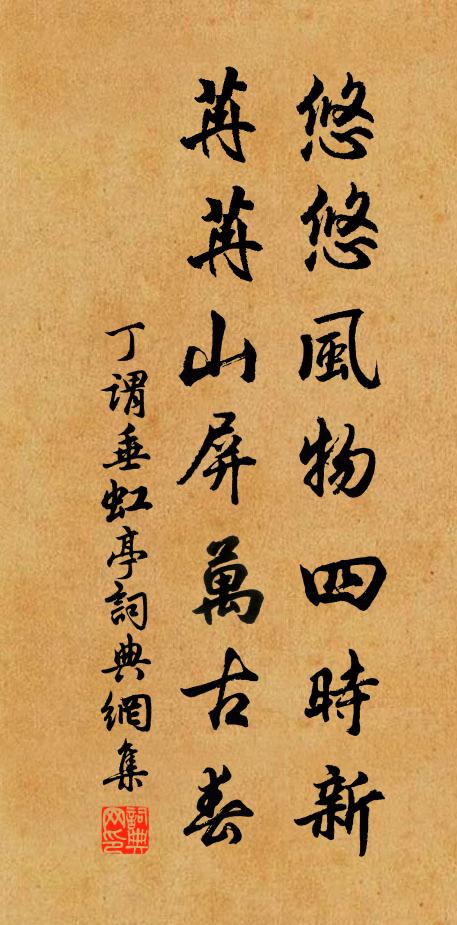 悠悠風物四時新
苒苒山屏萬古春
丁謂垂虹亭詞典網集
詞典网印